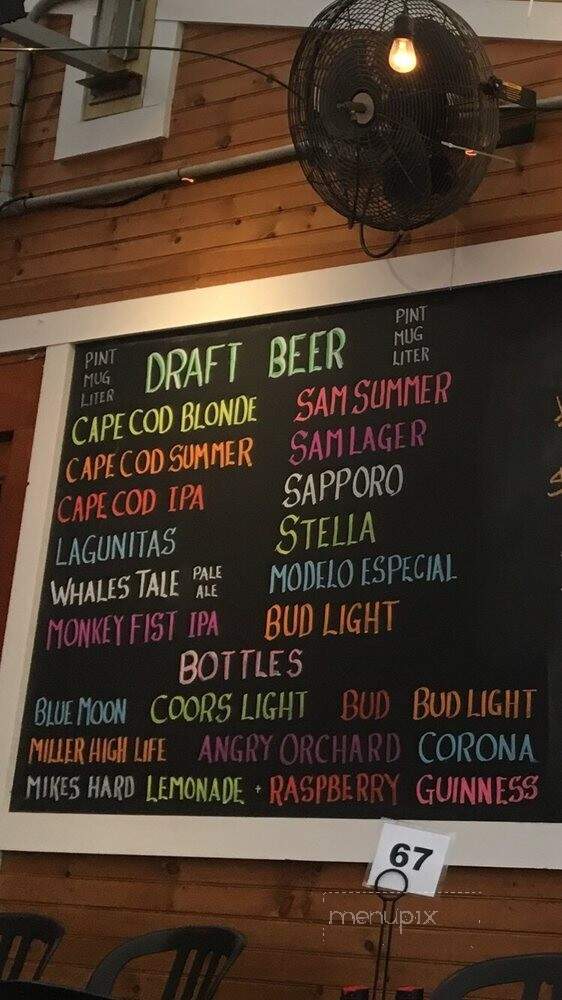 PINT
MUG
LITER
DRAFT BEER
PINT
MUG
LITER
CAPE COD BLONDE
CAPE COD SUMMER
CAPE COD IPA
LAGUNITAS
WHALES TALE PALE ALE
MONKEY FIST IPA
SAM SUMMER
SAM LAGER
SAPPORO
STELLA
MODELO ESPECIAL
BUD LIGHT
BOTTLES
BLUE MOON COORS LIGHT BUD BUD LIGHT
MILLER HIGH LIFE ANGRY ORCHARD CORONA
MIKES HARD LEMONADE + RASPBERRY GUINNESS
67
menupix